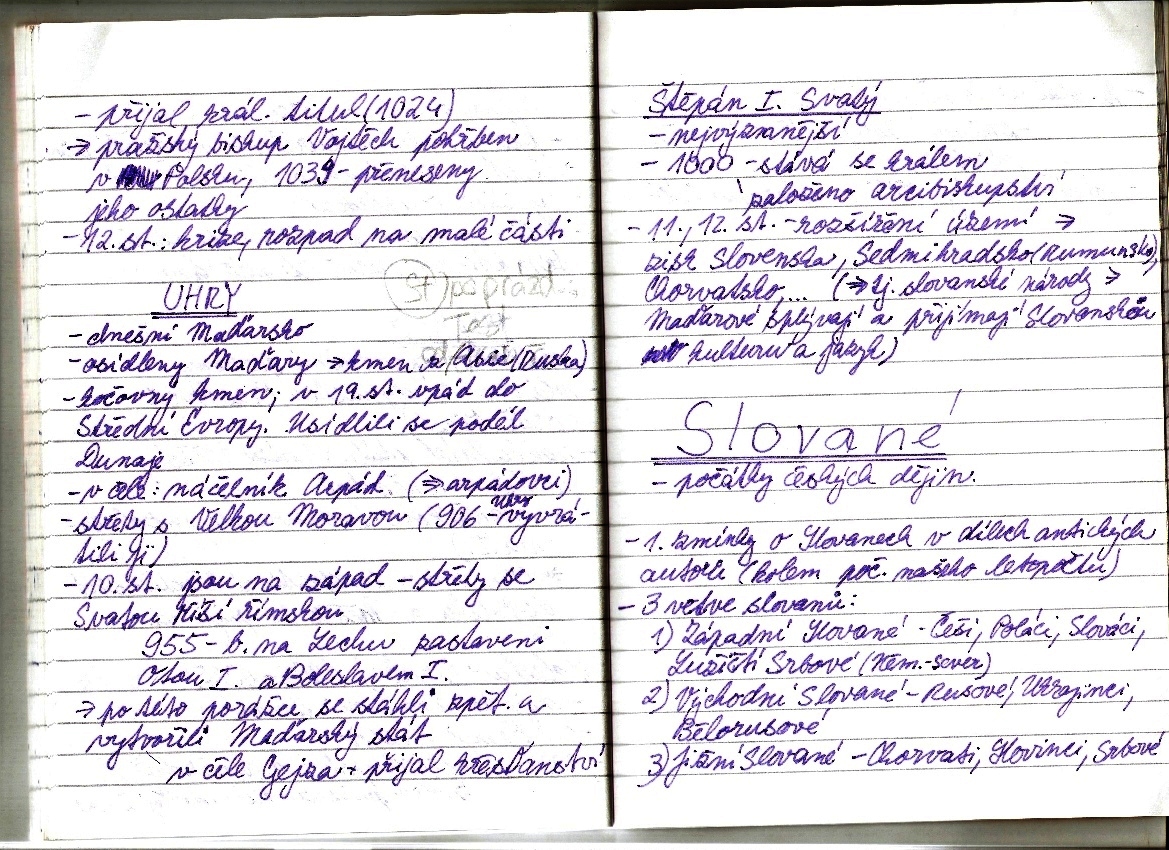 - přijal král. titul (1024)
→ pražský biskup Vojtěch pohřben
v Polsku, 1039 - přeneseny
jeho ostatky
- 12. st.: krize, rozpad na malé části
UHRY
- dnešní Maďarsko
- osídleny Maďary → kmen z Asie (Ruska)
- kočovný kmen; v 19. st. vpád do
Střední Evropy. Usídlili se podél
Dunaje
- v čele: náčelník Arpád (⇒ arpádovci)
- střety s Velkou Moravou (906 - Uhry vyvrá-
tili ji)
- 10. st. jsou na západ - střety se
Svatou Říší římskou
955 - b. na Lechu zastaveni
Otou I. a Boleslavem I.
→ po této porážce se stáhli zpět a
vytvořili Maďarský stát
v čele Gejza + přijal křesťanství
St)
Štěpán I. Svatý
- nejvýznamnější
- 1000 - stává se králem
založeno arcibiskupství
- 11., 12. st. - rozšíření území →
zisk Slovenska, Sedmihradsko (Rumunsko),
Chorvatsko,... (⇒ tj. slovanské národy →
Maďarové splývají a přijímají Slovanskou
kulturu a jazyk)
Slované
- počátky českých dějin.
- 1. zmínky o Slovanech v dílech antických
autorů (kolem poč. našeho letopočtu)
- 3 větve slovanů:
1) Západní Slované - Češi, Poláci, Slováci,
Lužičtí Srbové (Něm.-sever)
2) Východní Slované - Rusové, Ukrajinci,
Bělorusové
3) Jižní Slované - Chorvati, Slovinci, Srbové